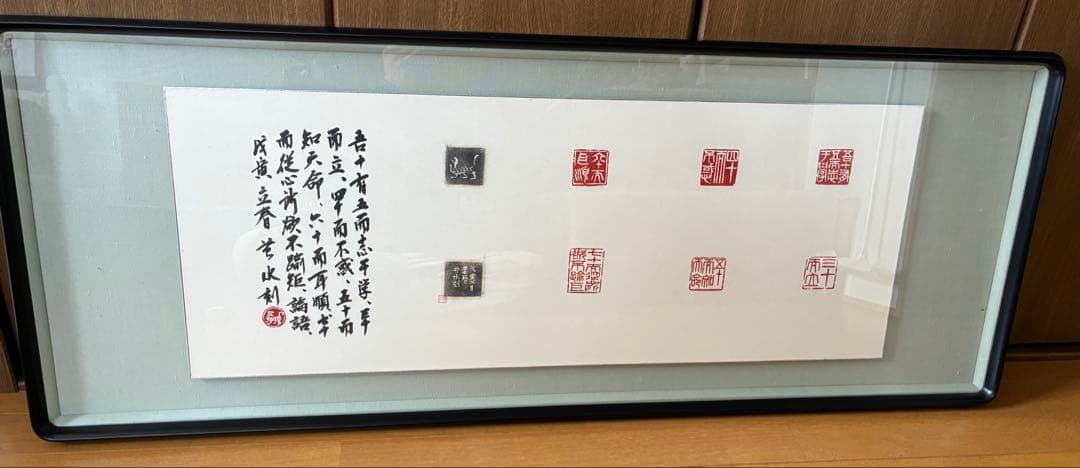 吾十有五而志于學
三十而立
四十而不惑
五十而知天命
六十而耳順
吾十有五而志于学、三十
而立、四十而不惑、五十而
知天命、六十而耳順、七十
而従心所欲不踰矩 論語、
戊寅 立春 水刻